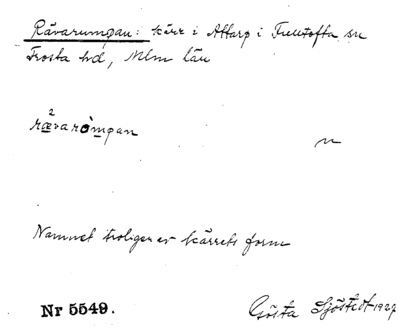 Rävarumpan: kärr i Attarp i Fulltofta sn
Frosta hd, Mlm län
2
rævaròmpan
n
Namnet troligen av kärrets form
Nr 5549.
Gösta Sjöstedt 1927